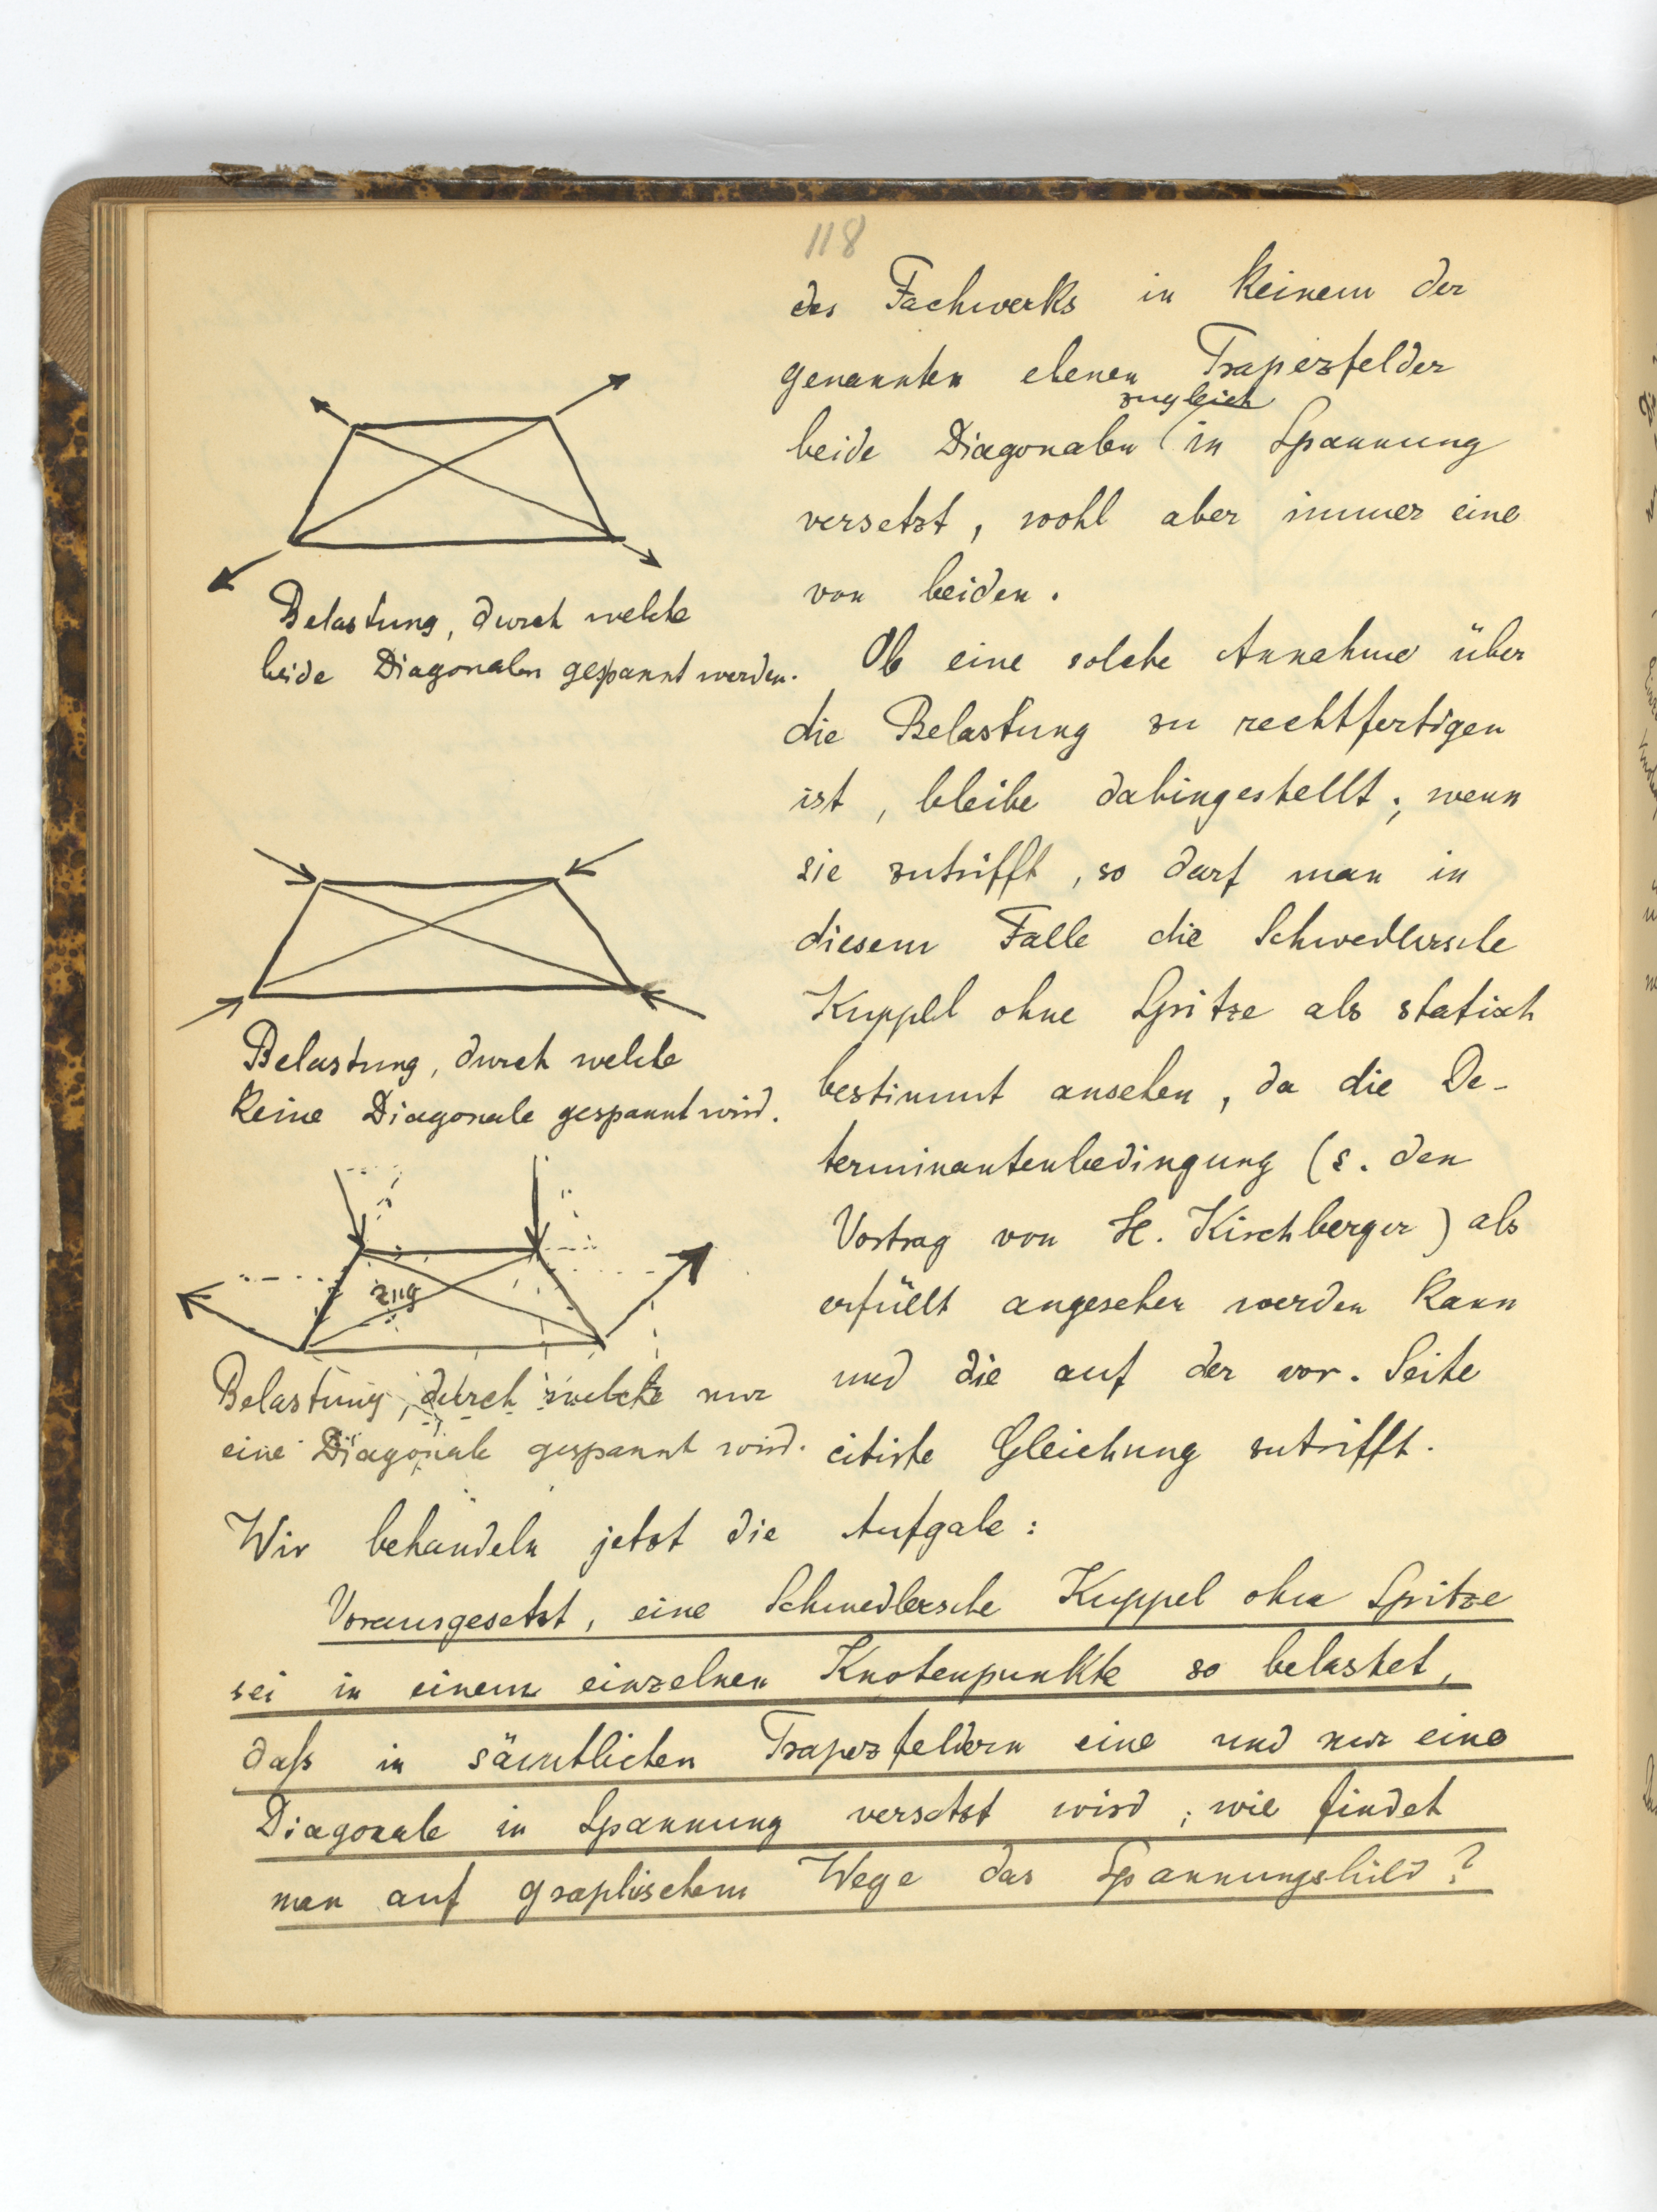 118
des Fachwerks in keinem der
genannten ebenen Trapezfelder
zugleich
beide Diagonalen in Spannung
versetzt, wohl aber immer eine
von beiden.
Ob eine solche Annahme über
die Belastung zu rechtfertigen
ist, bleibe dahingestellt; wenn
sie zutrifft, so darf man in
diesem Falle die Schwedlersche
Kuppel ohne Spitze als statisch
bestimmt ansehen, da die De-
terminantenbedingung (s. den
Vortrag von H. Kirchberger) als
erfüllt angesehen werden kann
und die auf der vor. Seite
citirte Gleichung zutrifft.
Belastung, durch welche
beide Diagonalen gespannt werden.
Belastung, durch welche
keine Diagonale gespannt wird.
Zug
Belastung, durch welche nur
eine Diagonale gespannt wird.
Wir behandeln jetzt die Aufgabe:
Vorausgesetzt, eine Schwedlersche Kuppel ohne Spitze
sei in einem einzelnen Knotenpunkte so belastet,
daß in sämtlichen Trapezfeldern eine und nur eine
Diagonale in Spannung versetzt wird; wie findet
man auf graphischem Wege das Spannungsbild?